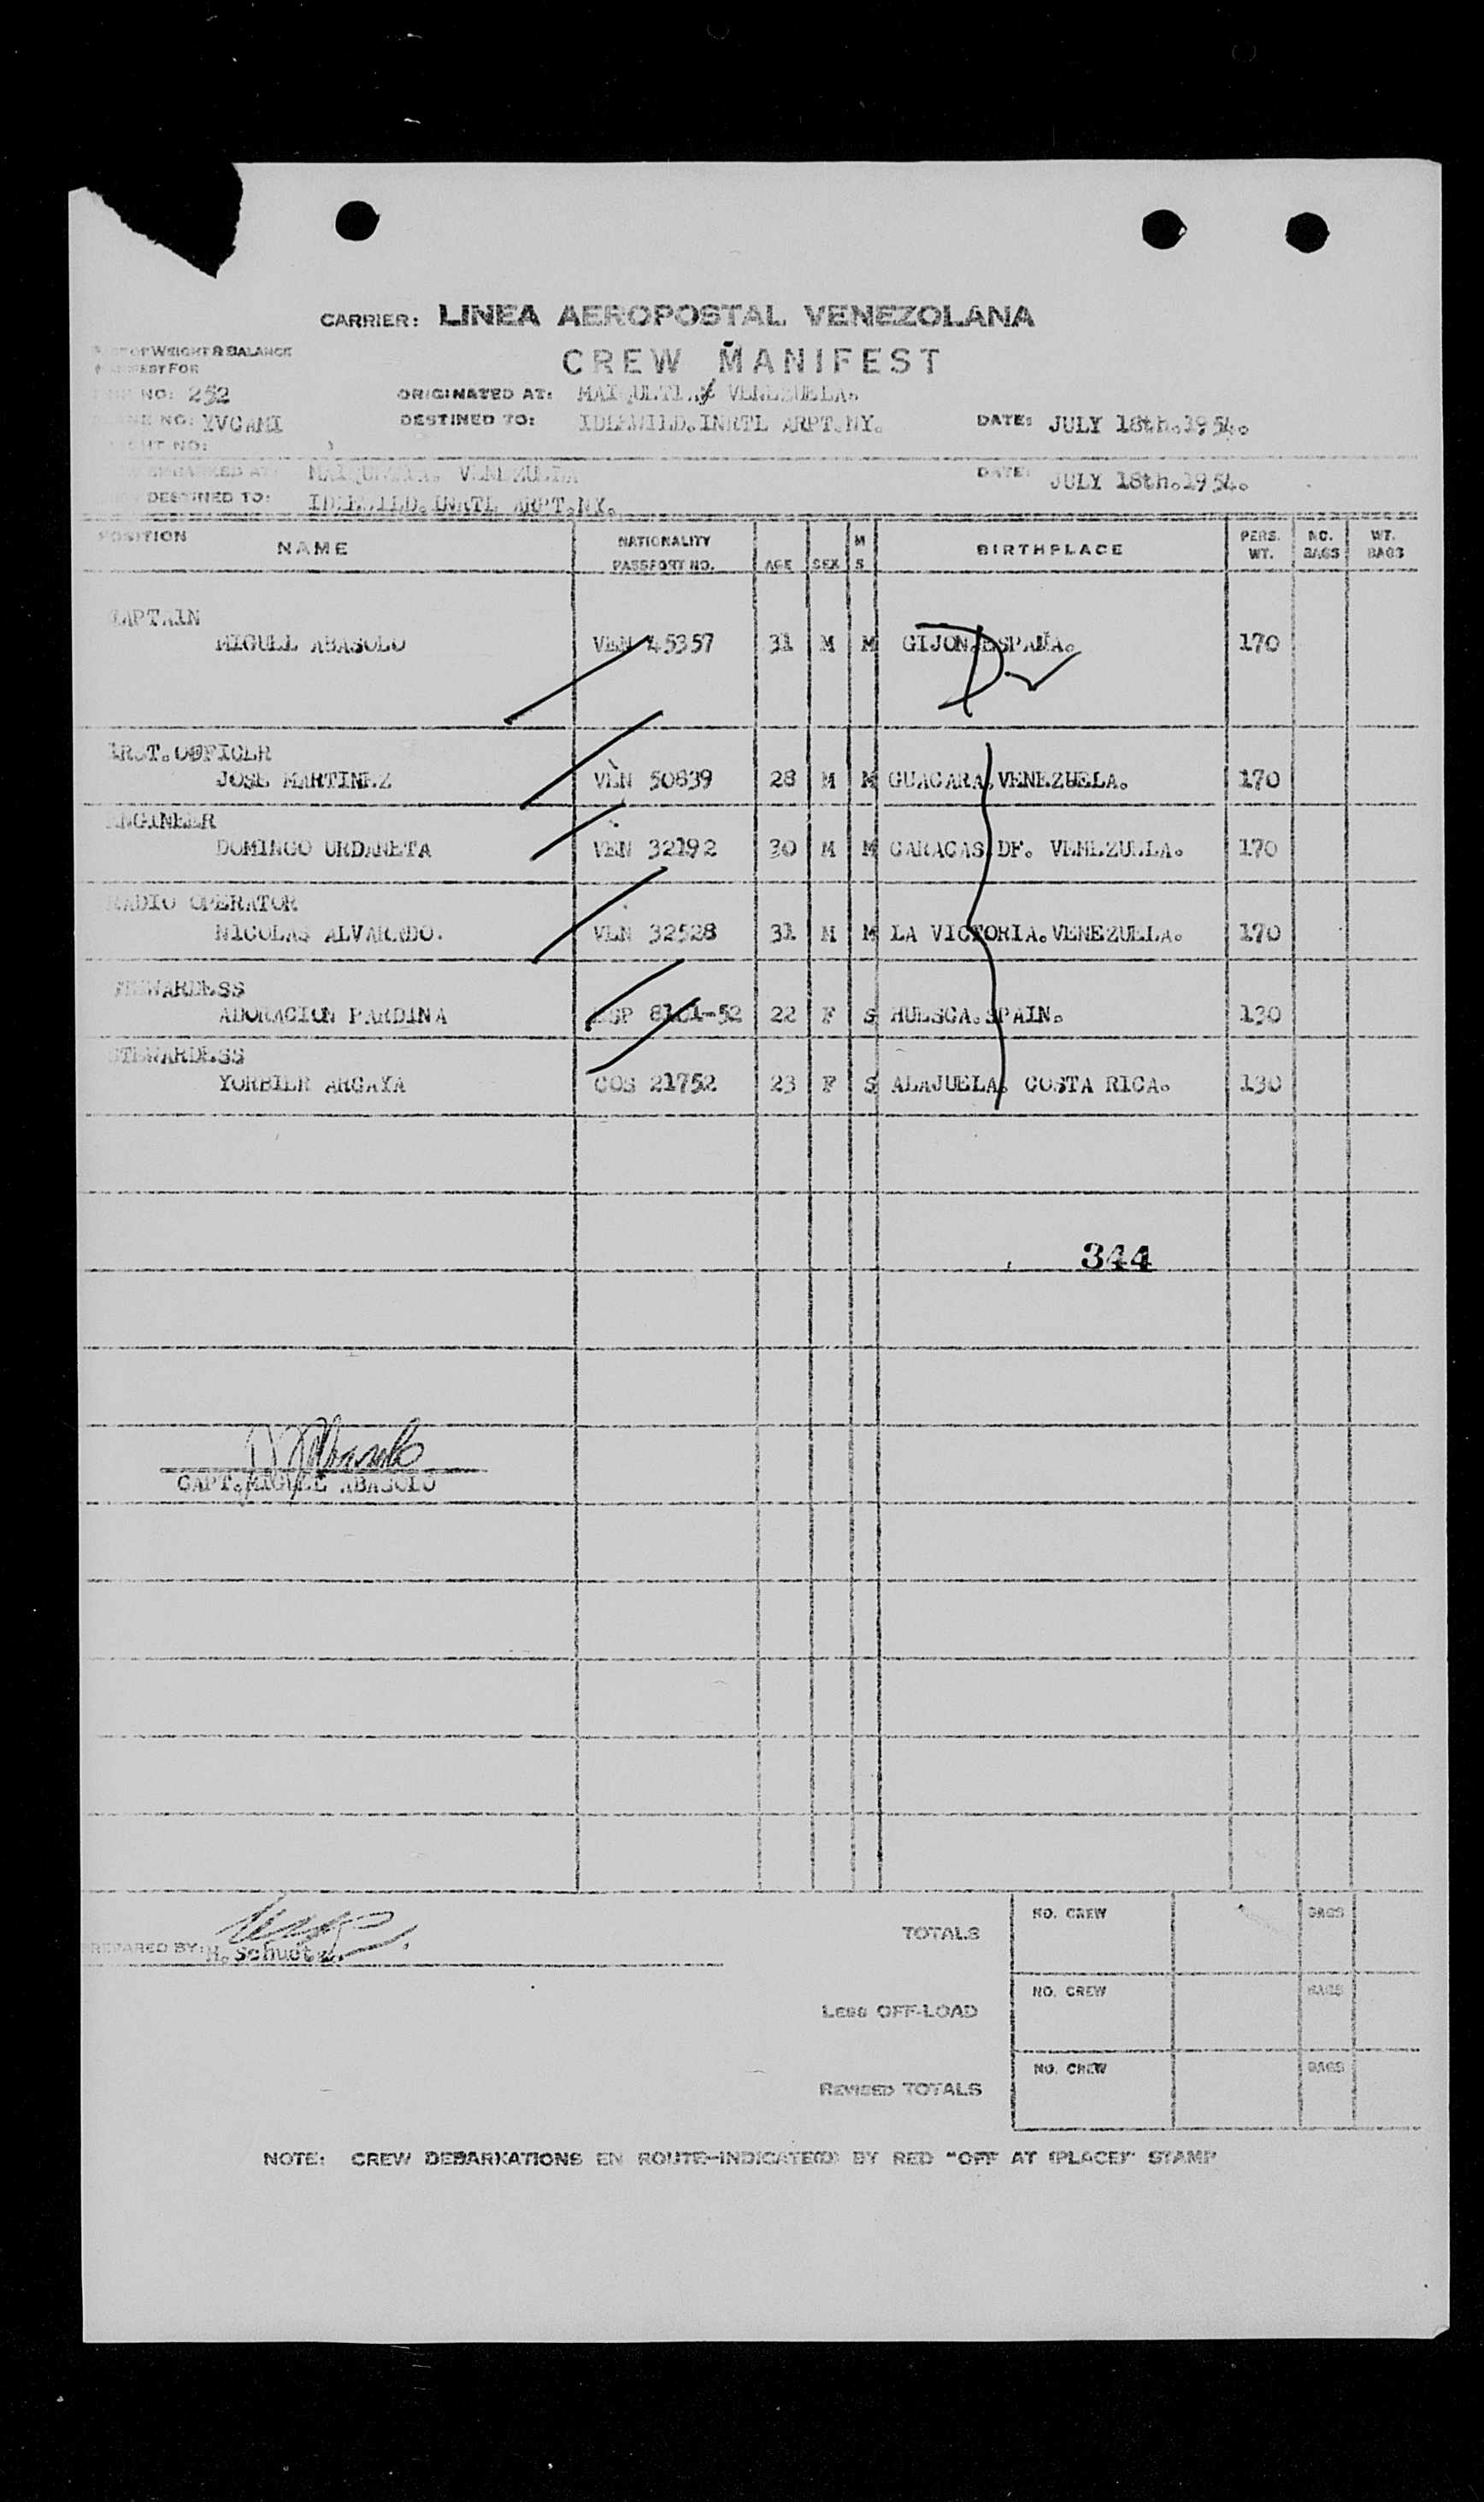 CARRIER: LINEA AEROPOSTAL VENEZOLANA
OF WEIGHT & BALANCE
FOR
CREW MANIFEST
NO: 252
ORIGINATED AT: VENEZUELA.
NO: YVCAMI
DESTINED TO: IDLEWILD.INRTL ARPT.NY.
DATE: JULY 18th.1954.
NO:
VENEZUELA
DATE: JULY 18th.1954.
DESTINED TO: IDLEWILD.INRTL ARPT.NY.
POSITION NAME NATIONALITY PASSPORT NO. AGE SEX M S BIRTHPLACE PERS. WT. NO. BAGS WT. BAGS
CAPTAIN
MIGUEL ABASOLO VEN 45357 31 M M GIJON.ESPAÑA. 170
OFFICER
JOSE MARTINEZ VEN 50839 28 M M GUACARA.VENEZUELA. 170
ENGINEER
DOMINGO URDANETA VEN 32192 30 M M CARACAS.DF. VENEZUELA. 170
RADIO OPERATOR
NICOLAS ALVARADO. VEN 32528 31 M M LA VICTORIA.VENEZUELA. 170
STEWARDESS
ADORACION PARDINA ESP 52 22 F S HUESCA.SPAIN. 130
STEWARDESS
YORBILR ARGAYA COS 21752 23 F S ALAJUELA. COSTA RICA. 130
344
CAPT.MIGUEL ABASOLO
PREPARED BY:
TOTALS NO. CREW BAGS
LESS OFF-LOAD NO. CREW BAGS
REVISED TOTALS NO. CREW BAGS
NOTE: CREW DEBARKATIONS EN ROUTE-INDICATE(D) BY RED "OFF AT (PLACE)" STAMP